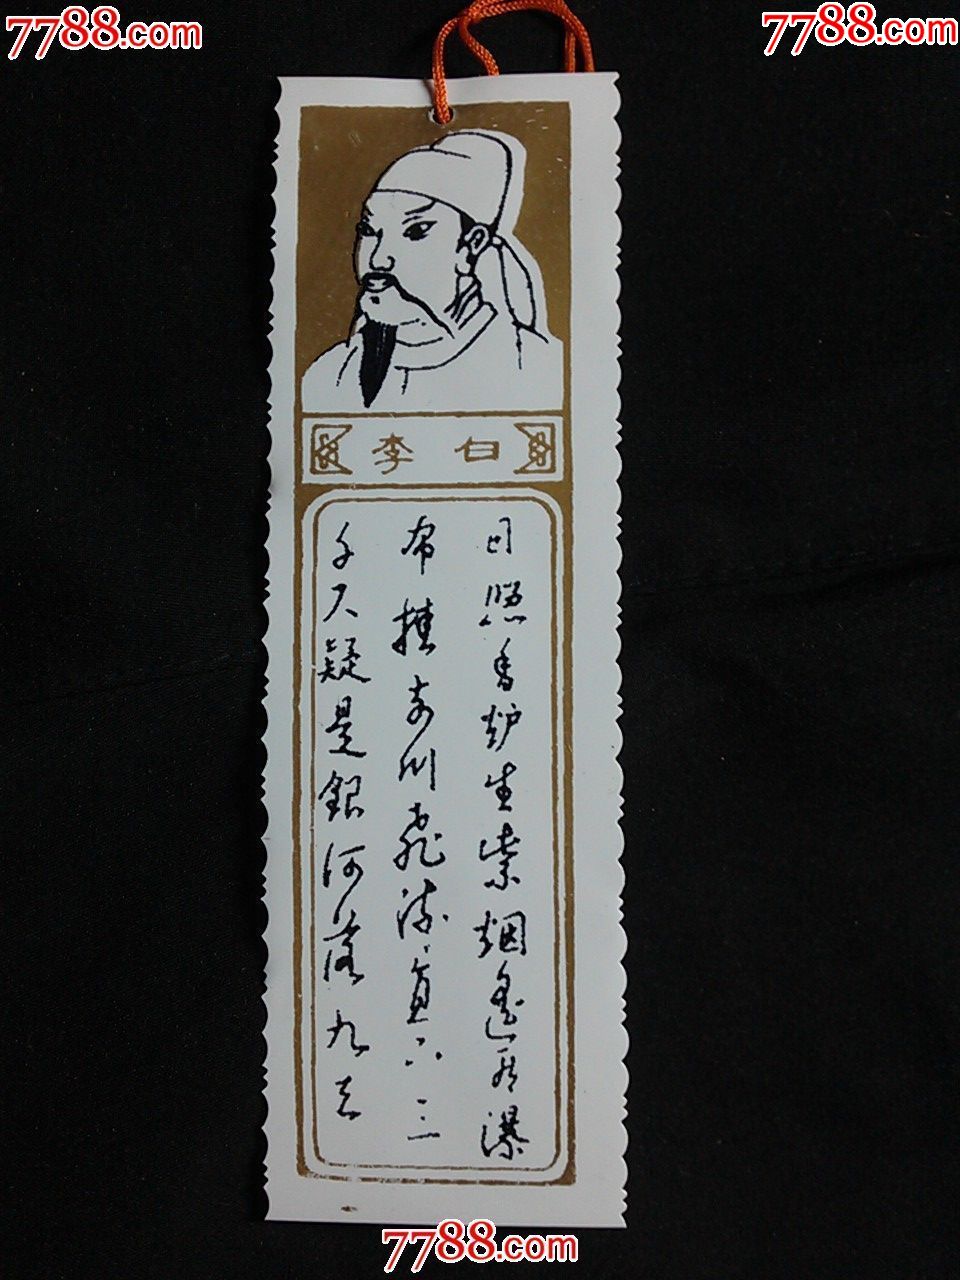 7788.com
7788.com
李白
日照香炉生紫烟遥看瀑
布挂前川飞流直下三
千尺疑是銀河落九天
7788.com